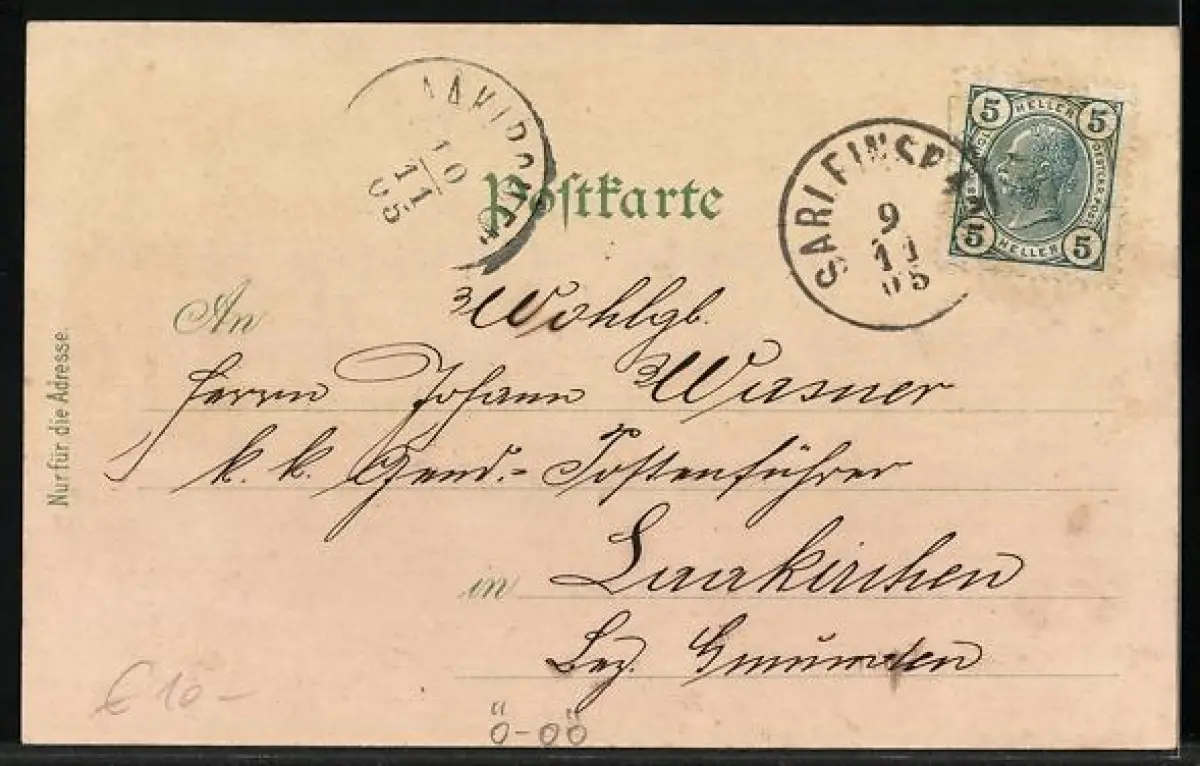 AAKIRCHEN
10
11
05
Postkarte
SARLEINSBA
9
11
05
5 HELLER 5
5 HELLER 5
An
Wohlgb.
Herrn Johann Wasner
k. k. Gend.- Postenführer
in Laakirchen
Bez. Gmunden
Nur für die Adresse.
€ 10 –
Ö-OÖ